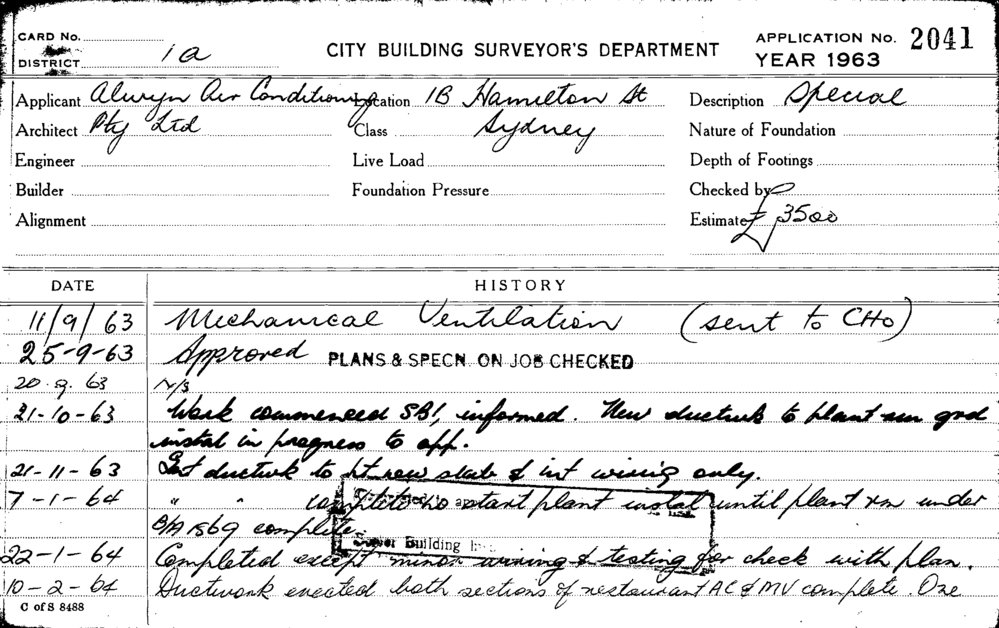 CARD No.
DISTRICT 1a
CITY BUILDING SURVEYOR'S DEPARTMENT
APPLICATION No. 2041
YEAR 1963
Applicant Alwyn Air Conditioning Location 1B Hamilton St Description Special
Architect Pty Ltd Class Sydney Nature of Foundation
Engineer Live Load Depth of Footings
Builder Foundation Pressure Checked by
Alignment Estimate £3500
DATE HISTORY
11/9/63 Mechanical Ventilation (sent to CHO)
25-9-63 Approved PLANS & SPECN. ON JOB CHECKED
20.9.63 N/S
21-10-63 Work commenced SBI, informed. New ductwk to plant rm grd
instal in progress to app.
21-11-63 ductwk to new slab & int wiring only.
7-1-64 " " complete no start plant instal until plant rm under
B/A 1869 complete.
Building
22-1-64 Completed except minor wiring & testing for check with plan.
10-2-64 Ductwork erected both sections of restaurant AC & MV complete. One
C of S 8488